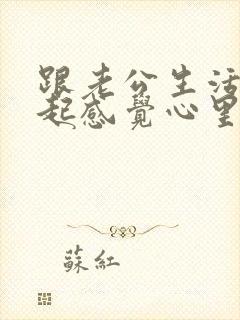 跟老公生活
起感覺心里
蘇紅